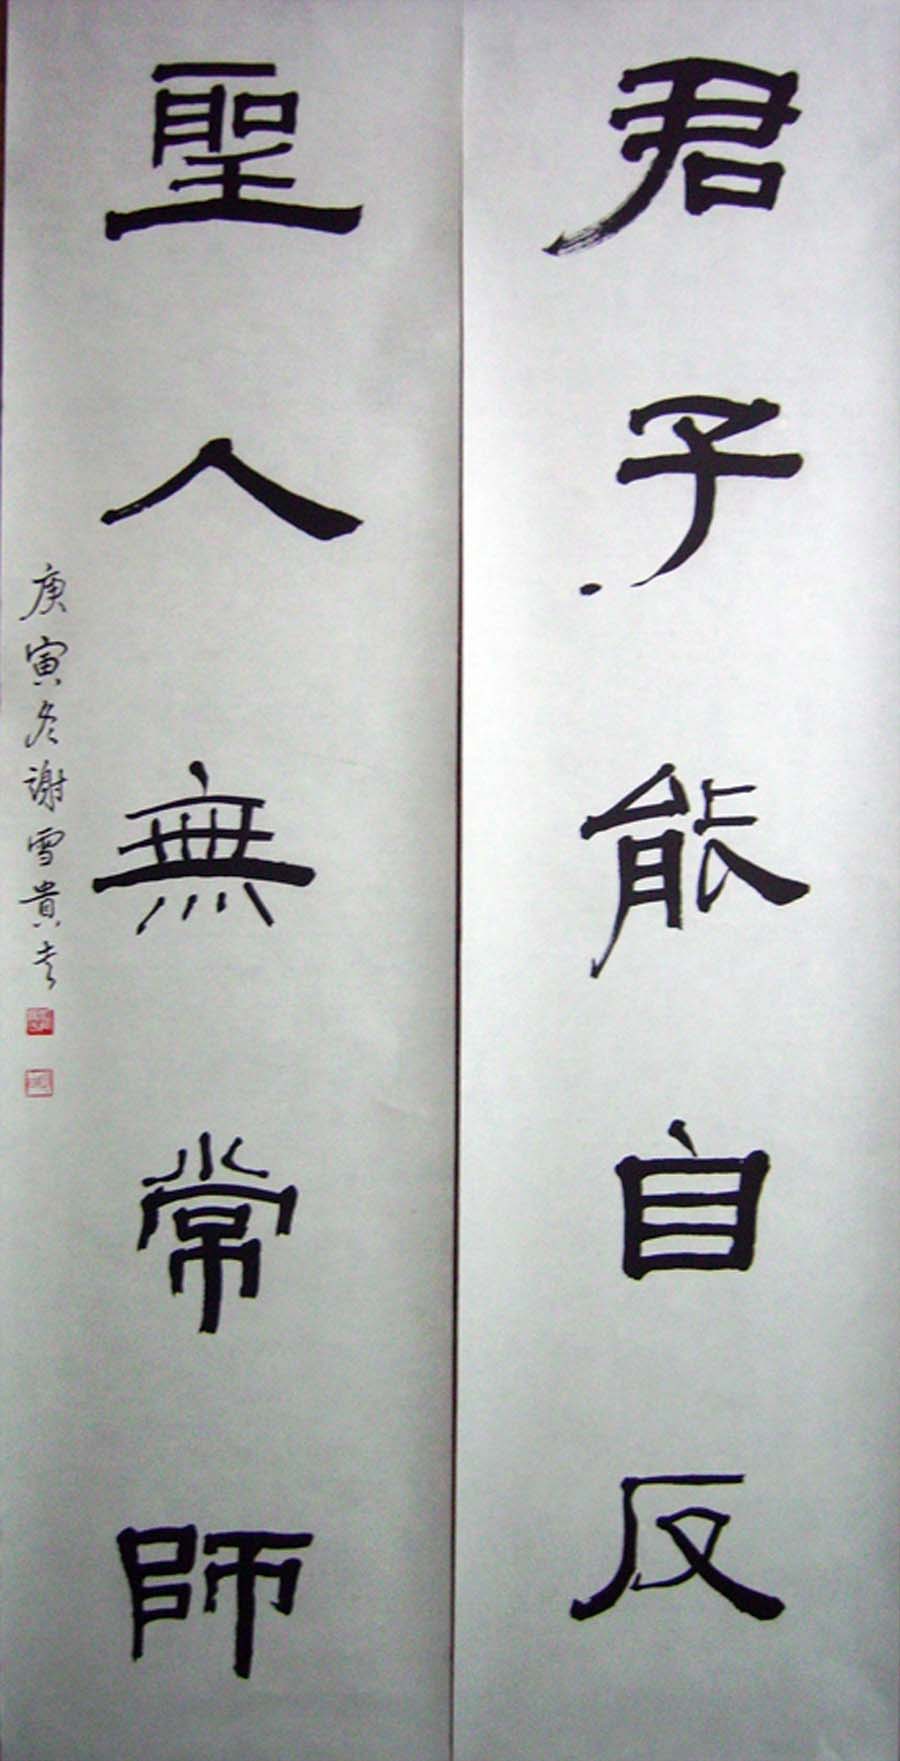 君子能自反
聖人無常師
庚寅冬謝雪貴书